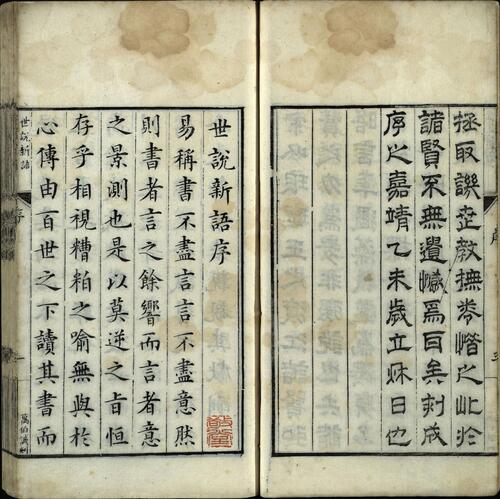 拯取譏世教撫卷惜之此於
諸賢不無遺憾焉耳矣刻成
序之嘉靖乙未歲立秋日也
世說新語序
易稱書不盡言言不盡意然
則書者言之餘響而言者意
之景測也是以莫逆之旨恒
存乎相視糟粕之喻無與於
心傳由百世之下讀其書而
世說新語
序
一